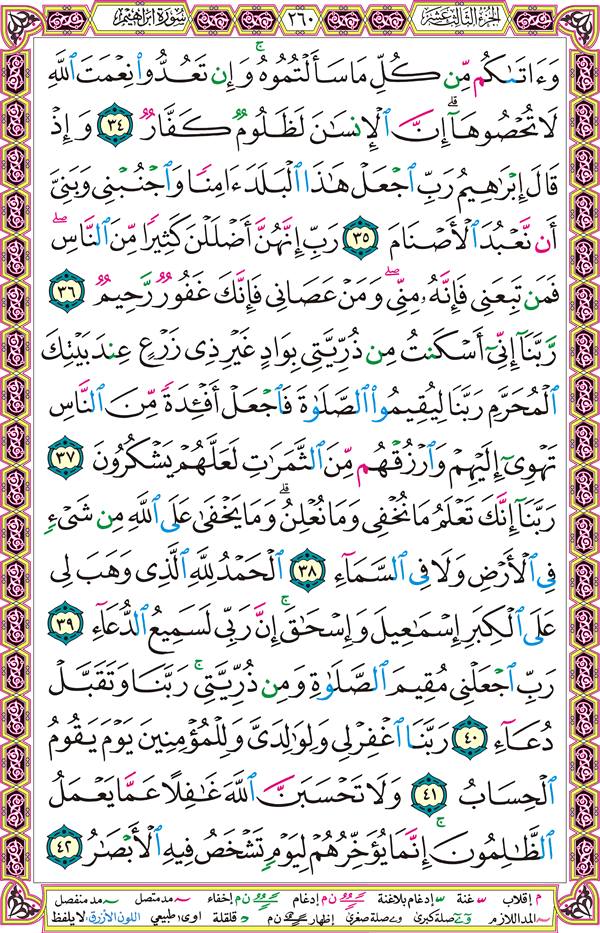 الجزء الثالث عشر ٢٦٠ سورة إبراهيم
وَءَاتَىٰكُم مِّن كُلِّ مَا سَأَلْتُمُوهُ ۚ وَإِن تَعُدُّوا۟ نِعْمَتَ ٱللَّهِ
لَا تُحْصُوهَآ ۗ إِنَّ ٱلْإِنسَـٰنَ لَظَلُومٌ كَفَّارٌ ٣٤ وَإِذْ
قَالَ إِبْرَٰهِيمُ رَبِّ ٱجْعَلْ هَـٰذَا ٱلْبَلَدَ ءَامِنًا وَٱجْنُبْنِى وَبَنِىَّ
أَن نَّعْبُدَ ٱلْأَصْنَامَ ٣٥ رَبِّ إِنَّهُنَّ أَضْلَلْنَ كَثِيرًا مِّنَ ٱلنَّاسِ ۖ
فَمَن تَبِعَنِى فَإِنَّهُۥ مِنِّى ۖ وَمَنْ عَصَانِى فَإِنَّكَ غَفُورٌ رَّحِيمٌ ٣٦
رَّبَّنَآ إِنِّىٓ أَسْكَنتُ مِن ذُرِّيَّتِى بِوَادٍ غَيْرِ ذِى زَرْعٍ عِندَ بَيْتِكَ
ٱلْمُحَرَّمِ رَبَّنَا لِيُقِيمُوا۟ ٱلصَّلَوٰةَ فَٱجْعَلْ أَفْـِٔدَةً مِّنَ ٱلنَّاسِ
تَهْوِىٓ إِلَيْهِمْ وَٱرْزُقْهُم مِّنَ ٱلثَّمَرَٰتِ لَعَلَّهُمْ يَشْكُرُونَ ٣٧
رَبَّنَآ إِنَّكَ تَعْلَمُ مَا نُخْفِى وَمَا نُعْلِنُ ۗ وَمَا يَخْفَىٰ عَلَى ٱللَّهِ مِن شَىْءٍ
فِى ٱلْأَرْضِ وَلَا فِى ٱلسَّمَآءِ ٣٨ ٱلْحَمْدُ لِلَّهِ ٱلَّذِى وَهَبَ لِى
عَلَى ٱلْكِبَرِ إِسْمَـٰعِيلَ وَإِسْحَـٰقَ ۚ إِنَّ رَبِّى لَسَمِيعُ ٱلدُّعَآءِ ٣٩
رَبِّ ٱجْعَلْنِى مُقِيمَ ٱلصَّلَوٰةِ وَمِن ذُرِّيَّتِى ۚ رَبَّنَا وَتَقَبَّلْ
دُعَآءِ ٤٠ رَبَّنَا ٱغْفِرْ لِى وَلِوَٰلِدَىَّ وَلِلْمُؤْمِنِينَ يَوْمَ يَقُومُ
ٱلْحِسَابُ ٤١ وَلَا تَحْسَبَنَّ ٱللَّهَ غَـٰفِلًا عَمَّا يَعْمَلُ
ٱلظَّـٰلِمُونَ ۚ إِنَّمَا يُؤَخِّرُهُمْ لِيَوْمٍ تَشْخَصُ فِيهِ ٱلْأَبْصَـٰرُ ٤٢
م إقلاب غنة إدغام بلاغنة ن م إدغام إخفاء مد متصل مد منفصل
المد اللازم صلة كبرى صلة صغرى إظهار ن م قلقلة اوى طبيعي اللون الأزرق لا يلفظ